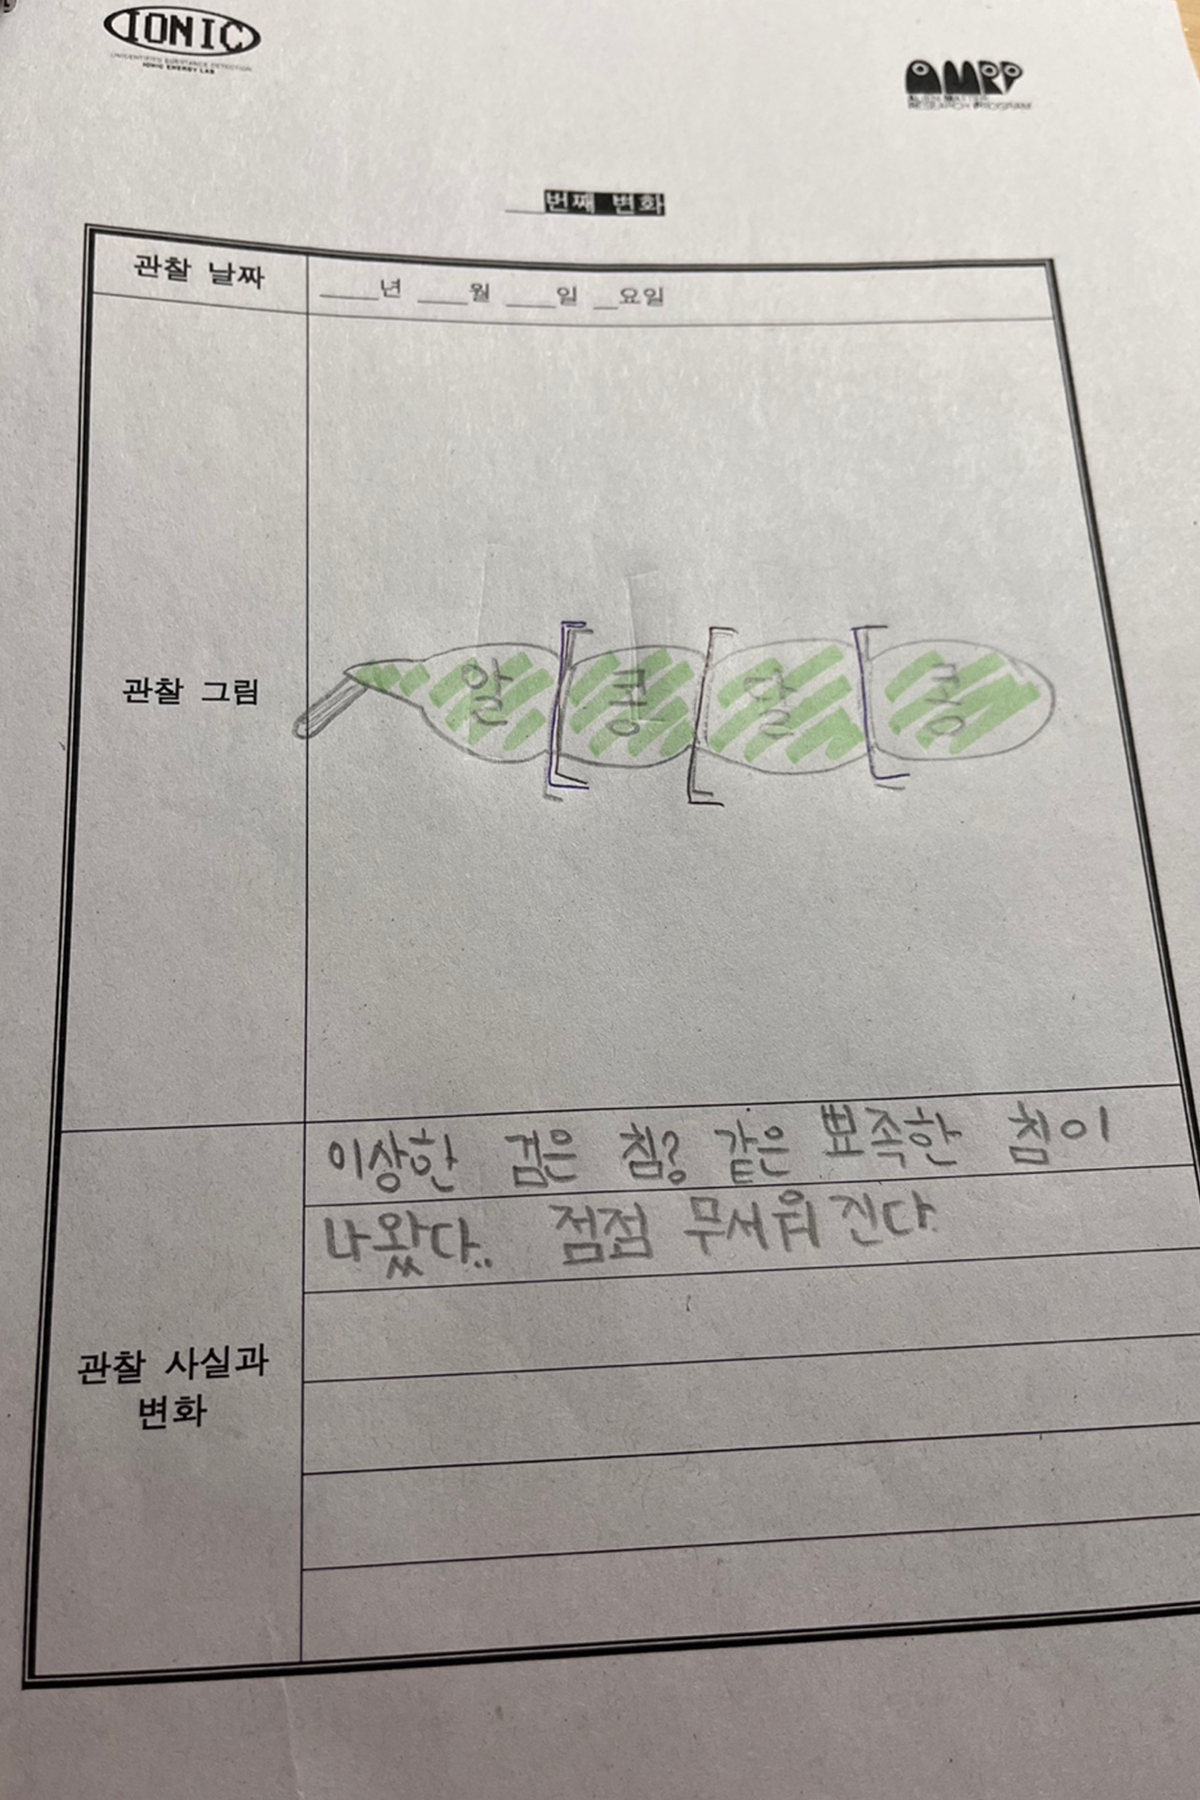 IONIC
UNIDENTIFIED SUBSTANCE DETECTION
IONIC ENERGY LAB
AMRP
ALIEN MATTER
RESEARCH PROGRAM
___번째 변화
관찰 날짜
____년 ____월 ____일 __요일
관찰 그림
알 콩 달 콩
이상한 검은 침? 같은 뾰족한 침이
나왔다.. 점점 무서워진다.
관찰 사실과
변화